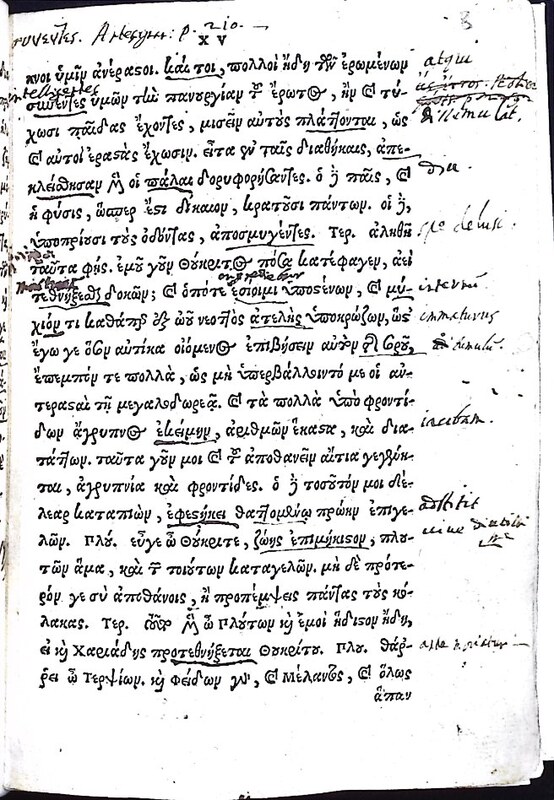 συνεντες. p. 210.
XV
κνοι ὑμῖν ἀνέραστοι. καί τοι, πολλοὶ ἤδη τῶν ἐρωμένων
intelligentes
συνέντες ὑμῶν τὴν πανουργίαν τοῦ ἔρωτος, ἢν καὶ τύ-
χωσι παῖδας ἔχοντες, μισεῖν αὐτοὺς πλάττονται, ὡς
καὶ αὐτοὶ ἐραστὰς ἔχωσιν. εἶτα ἐν ταῖς διαθήκαις, ἀπε-
κλείσθησαν μὲν οἱ πάλαι δορυφορήσαντες. ὁ δὲ παῖς, καὶ
ἡ φύσις, ὥσπερ ἐστὶ δίκαιον, κρατοῦσι πάντων. οἱ δὲ,
ὑποπρίουσι τοὺς ὀδόντας, ἀποσμυγέντες. Τερ. ἀληθῆ
ταῦτα φής. ἐμοῦ γοῦν Θούκριτος πόσα κατέφαγεν, ἀεὶ
τεθνήξεσθαι δοκῶν; καὶ ὁπότε ἐσίοιμι ὑποστένων, καὶ μύ-
χιόν τι καθάπερ ἐξ ὠοῦ νεοττὸς ἀτελὴς ὑποκρώζων, ὥστ᾽
ἔγω γε ὅσον αὐτίκα οἰόμενος ἐπιβήσειν αὐτὸν τῆς σοροῦ,
ἔπεμπόν τε πολλὰ, ὡς μὴ ὑπερβάλλοιντό με οἱ ἀν-
τερασταὶ τῇ μεγαλοδωρεᾷ. καὶ τὰ πολλὰ ὑπὸ φροντί-
δων ἄγρυπνος ἐκείμην, ἀριθμῶν ἕκαστα, καὶ δια-
τάττων. ταῦτα γοῦν μοι καὶ τοῦ ἀποθανεῖν αἴτια γεγένη-
ται, ἀγρυπνία καὶ φροντίδες. ὁ δὲ τοσοῦτόν μοι δέ-
λεαρ καταπιὼν, ἐφεστήκει θαπτομένῳ πρώην ἐπιγε-
λῶν. Πλου. εὖγε ὦ Θούκριτε, ζώης ἐπιμήκιστον, πλου-
τῶν ἅμα, καὶ τῶν τοιούτων καταγελῶν. μὴ δὲ πρότε-
ρόν γε σὺ ἀποθάνοις, ἢ προπέμψεις πάντας τοὺς κό-
λακας. Τερ. τοῦτο μὲν ὦ Πλούτων καὶ ἐμοὶ ἥδιστον ἤδη,
εἰ καὶ Χαριάδης προτεθνήξεται Θουκρίτου. Πλου. θάρ-
ρει ὦ Τερψίων. καὶ Φείδων γὰρ, καὶ Μέλανθος, καὶ ὅλως
ἅπαν
atqui
dissimulat.
diu.
spe delusi.
immaturus
incubam.
adstitit